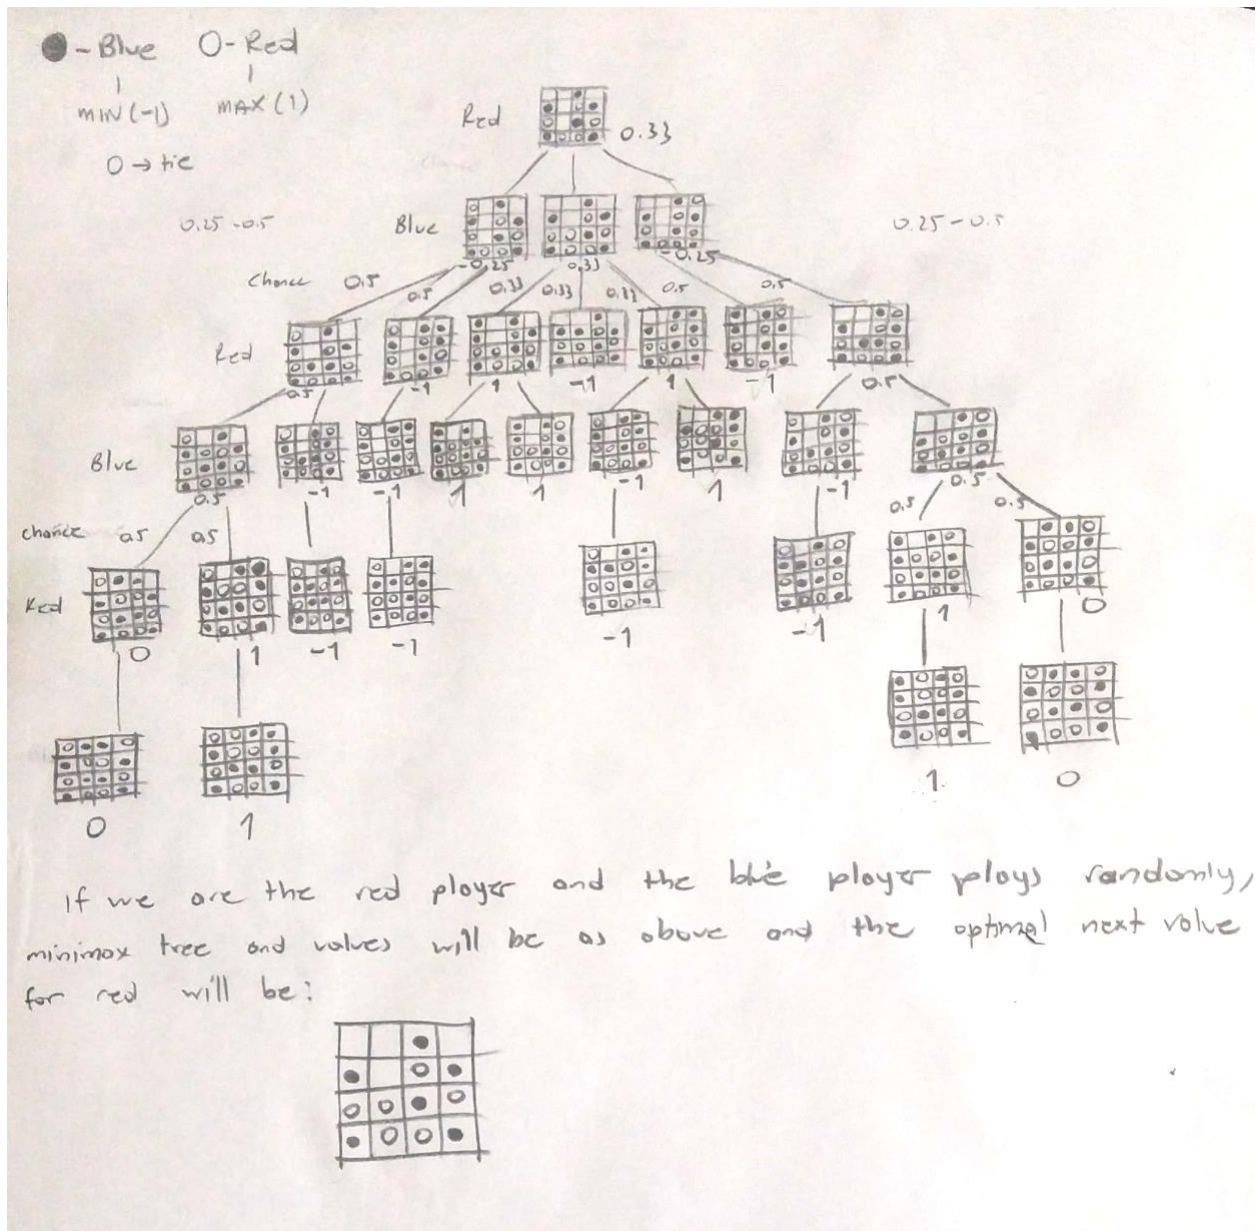 ●-Blue O-Red
MIN(-1) MAX(1)
0→tie
Red 0.33
0.25-0.5 Blue 0.25-0.5
-0.25 0.33 -0.25
Chance 0.5 0.5 0.33 0.33 0.33 0.5 0.5
Red
0.5 -1 1 -1 1 -1 0.5
Blue
0.5 -1 -1 1 1 -1 1 -1 0.5
chance 0.5 0.5 0.5 0.5
Red
0 1 -1 -1 -1 -1 1 0
0 1 1 0
If we are the red player and the blue player plays randomly,
minimox tree and values will be as above and the optimal next value
for red will be: